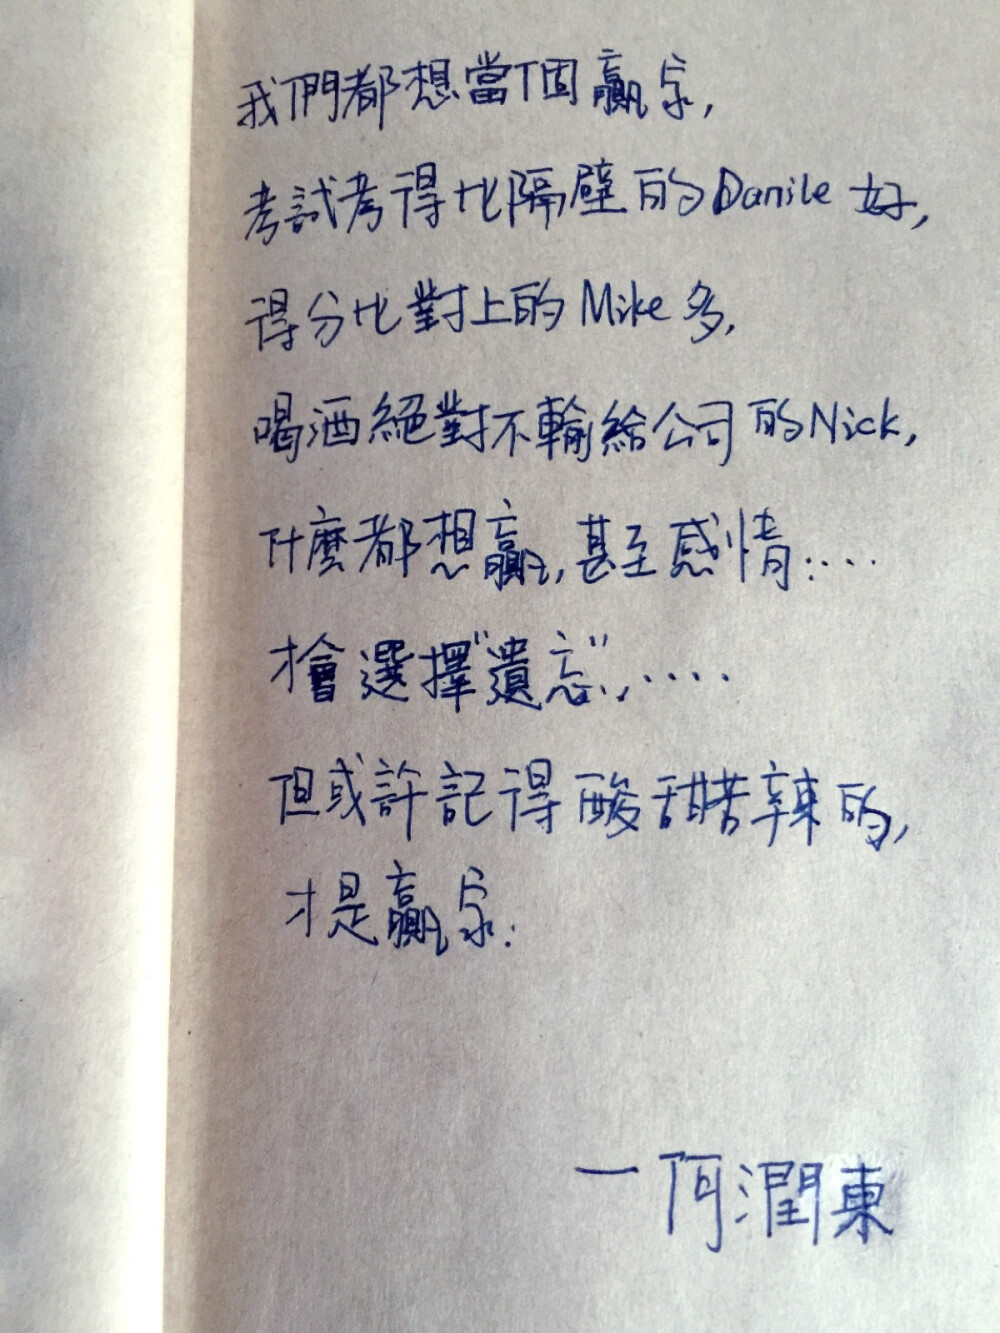 我們都想當個贏家,
考試考得比隔壁的Danile好,
得分比對上的Mike多,
喝酒絕對不輸給公司的Nick,
什麼都想贏,甚至感情:...
才會選擇"遺忘".,....
但或許記得酸甜苦辣的,
才是贏家.
一何潤東